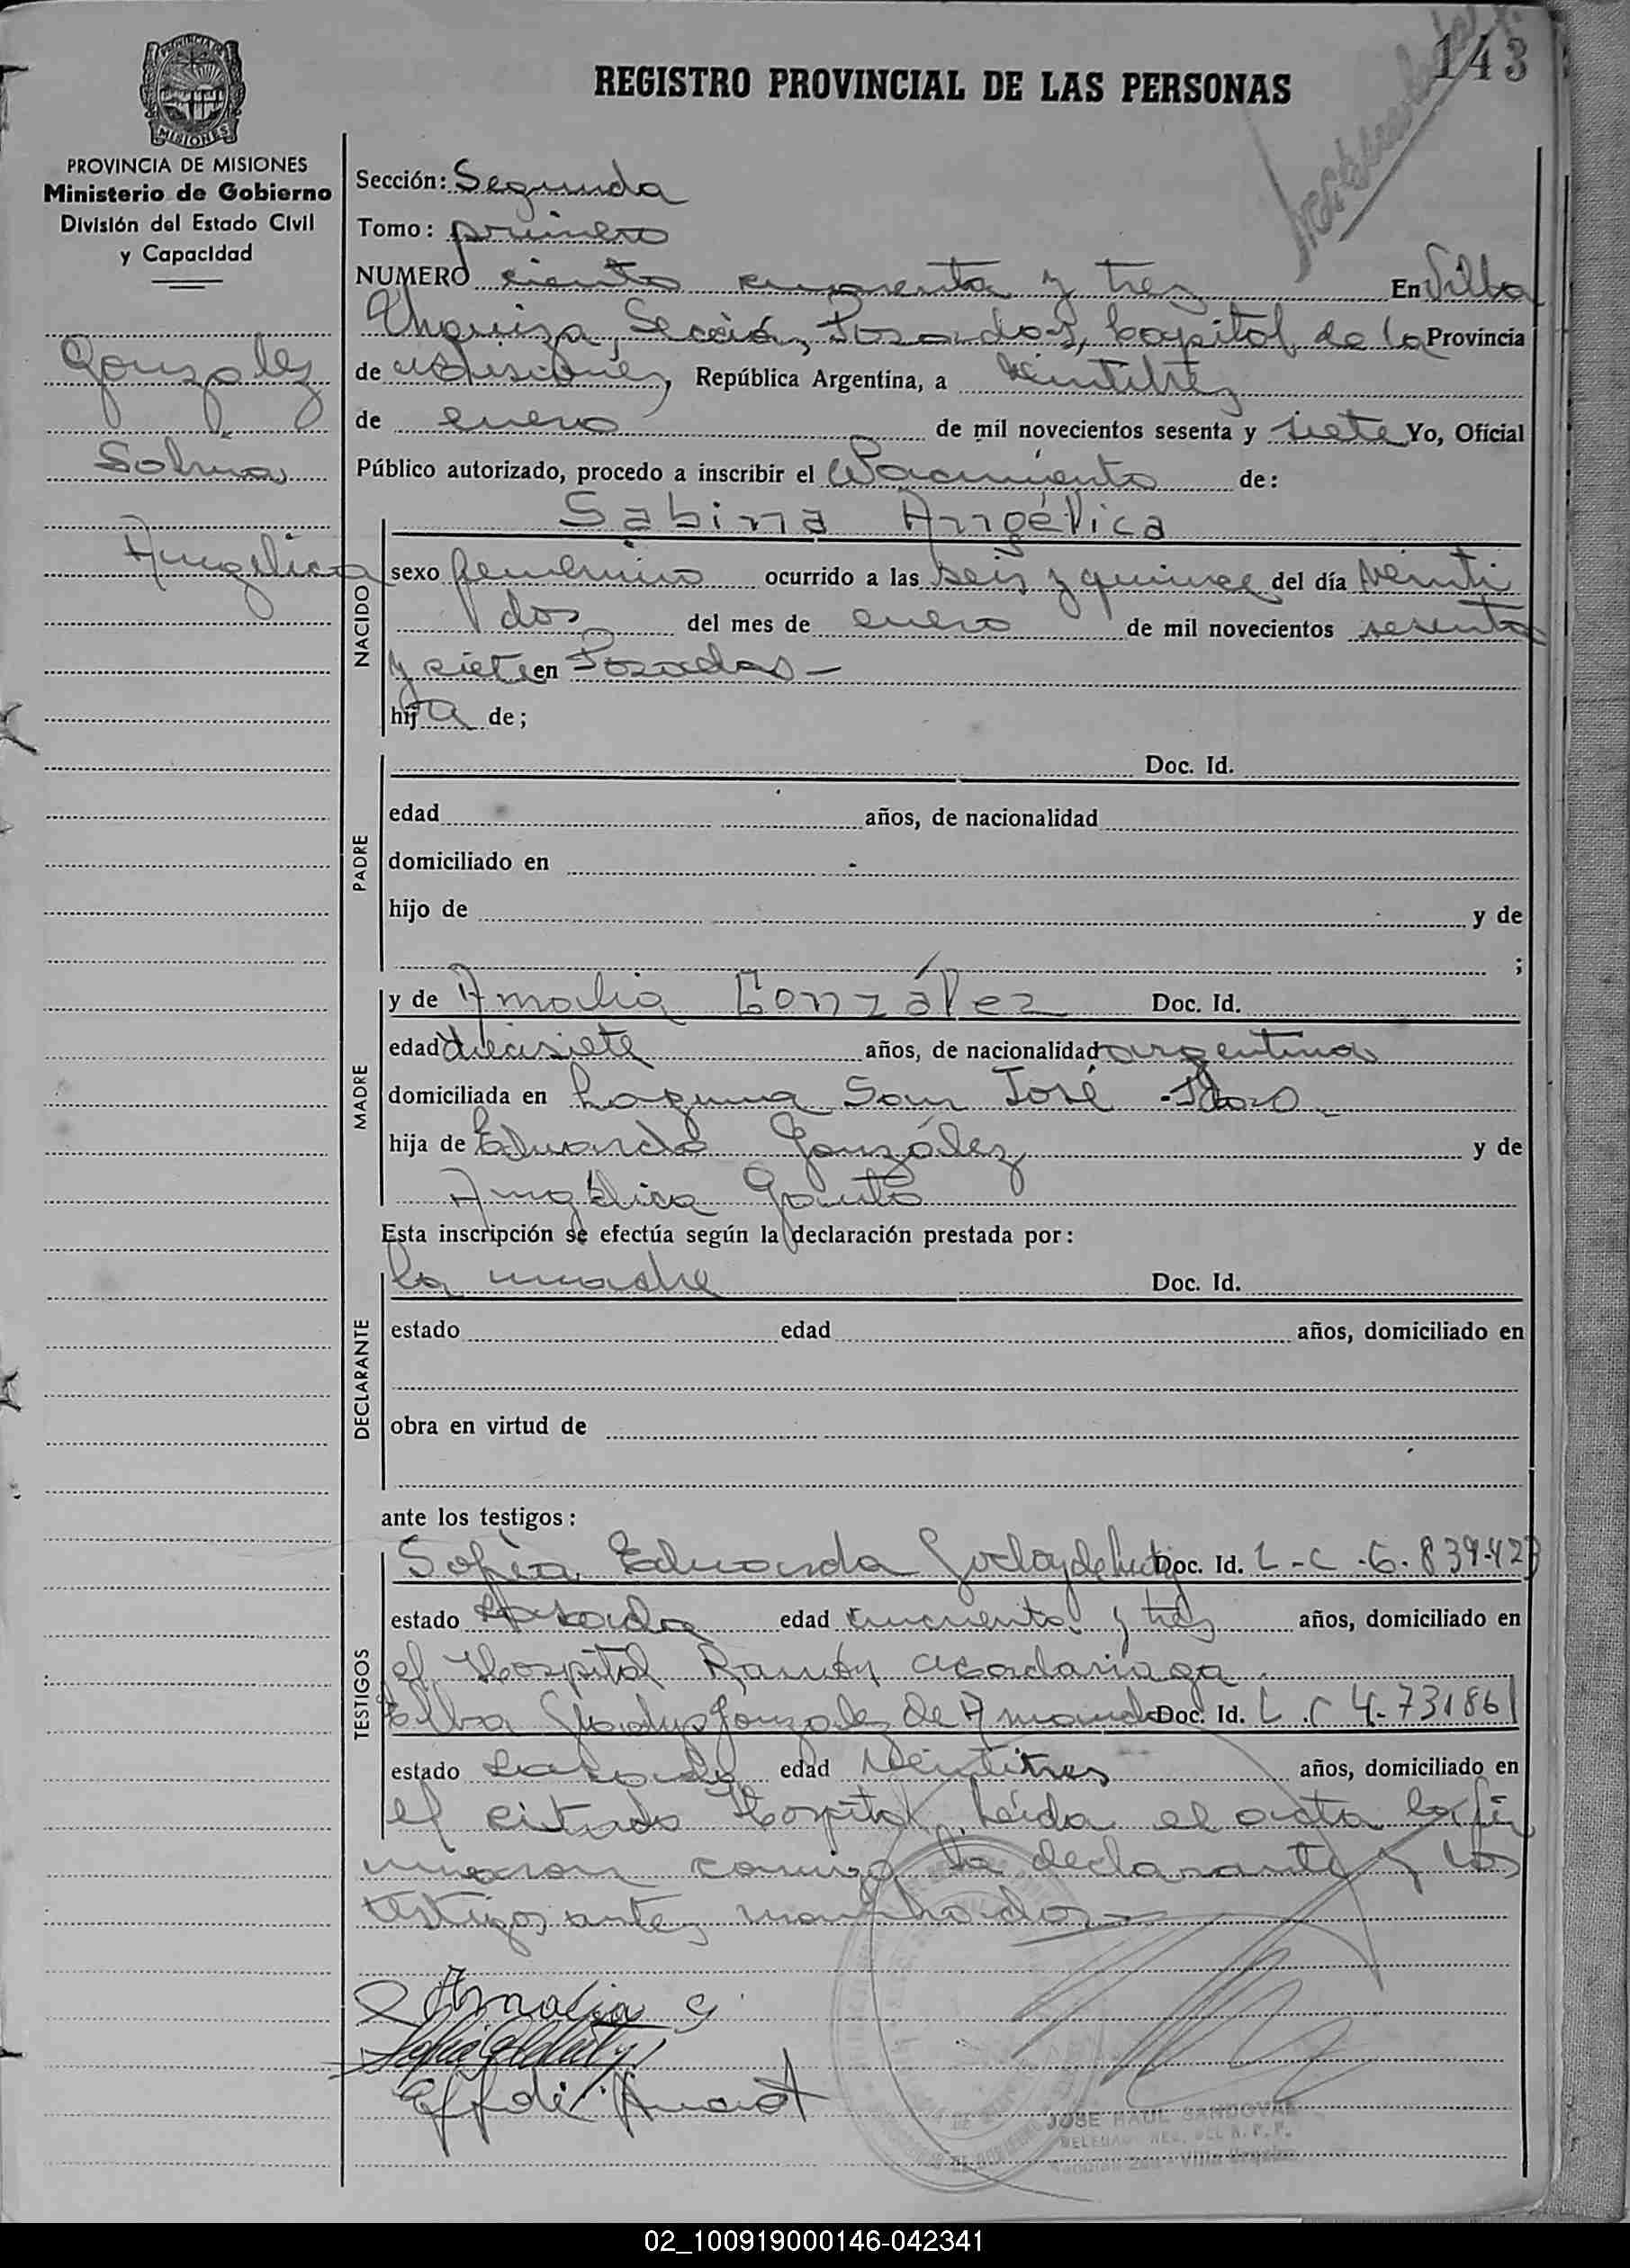 143
REGISTRO PROVINCIAL DE LAS PERSONAS
MISIONES
PROVINCIA DE MISIONES
Ministerio de Gobierno
División del Estado Civil
y Capacidad
Gonzalez
Sabina
Angélica
Sección: Segunda
Tomo: primero
NUMERO ciento cuarenta y tres En Villa
Urquiza, Sección, Posadas, Capital de la Provincia
de Misiones, República Argentina, a veintitres
de enero de mil novecientos sesenta y siete Yo, Oficial
Público autorizado, procedo a inscribir el Nacimiento de:
Sabina Angélica
NACIDO
sexo femenino ocurrido a las seis y quince del día veinti
dos del mes de enero de mil novecientos sesenta
y siete en Posadas -
hija de;
PADRE
Doc. Id.
edad años, de nacionalidad
domiciliado en
hijo de y de
;
MADRE
y de Amalia González Doc. Id.
edad diecisiete años, de nacionalidad argentina
domiciliada en Laguna San José
hija de Eduardo González y de
Angélica
Esta inscripción se efectúa según la declaración prestada por:
DECLARANTE
la madre Doc. Id.
estado edad años, domiciliado en
obra en virtud de
ante los testigos:
TESTIGOS
Sofía Eduarda Doc. Id. L-C-6.839.423
estado casada edad cincuenta y tres años, domiciliado en
el Hospital Ramón
Elba Gladys Gonzalez de Doc. Id. L.C 4.731861
estado casada edad veintitres años, domiciliado en
el citado Hospital. Leída el acta la fir
maron conmigo la declarante y los
testigos antes
Amalia G
JOSE RAUL SANDOVAL
02_100919000146-042341